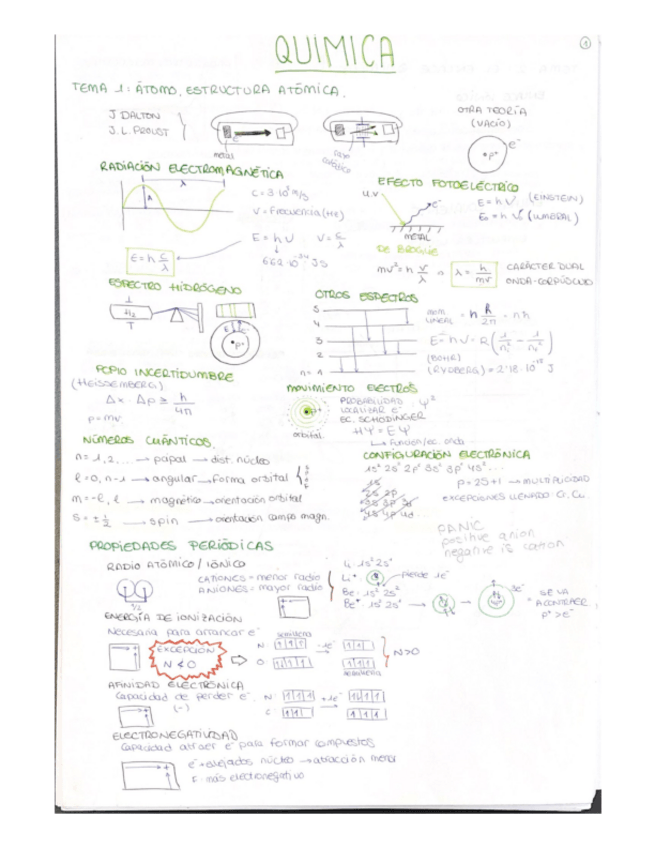 QUÍMICA
1
TEMA 1: ÁTOMO, ESTRUCTURA ATÓMICA.
J. DALTON
J. L. PROUST
metal
OTRA TEORÍA
(VACÍO)
e⁻
p⁺
RADIACIÓN ELECTROMAGNÉTICA
λ
A
C = 3·10⁸ m/s
V = Frecuencia (Hz)
E = h ν    ν = c/λ
6'62·10⁻³⁴ J·S
E = h c/λ
EFECTO FOTOELÉCTRICO
U.V
e⁻
METAL
E = h ν (EINSTEIN)
E₀ = h ν₀ (UMBRAL)
DE BROGLIE
mv² = h v/λ → λ = h/mv
CARÁCTER DUAL
ONDA-CORPÚSCULO
ESPECTRO HIDRÓGENO
H₂
p⁺
OTROS ESPECTROS
5
4
3
2
n = 1
MOM. LINEAL = n h/2π = nħ
E = h ν = R (1/n₁² − 1/n₂²)
(BOHR)
(RYDBERG) = 2'18·10⁻¹⁸ J
PCPIO INCERTIDUMBRE
(HEISSEMBERG)
Δx · Δp ≥ h/4π
p = mv
MOVIMIENTO ELECTRÓNS
p⁺
orbital
PROBABILIDAD ψ²
LOCALIZAR e⁻
EC. SCHODINGER
HΨ = EΨ
Función/ec. onda
NÚMEROS CUÁNTICOS.
n = 1, 2, ... → ppal → dist. núcleo
ℓ = 0, n-1 → angular → forma orbital
s
p
d
f
m = -ℓ, ℓ → magnético → orientación orbital
S = ± 1/2 → spin → orientación campo magn.
CONFIGURACIÓN ELECTRÓNICA
1s² 2s² 2p⁶ 3s² 3p⁶ 4s² ...
1s
2s 2p
3s 3p 3d
4s 4p 4d ...
p = 2S+1 → MULTIPLICIDAD
EXCEPCIONES LLENADO: Cr, Cu.
PANIC
positive anion
negative is cation
PROPIEDADES PERIÓDICAS
RADIO ATÓMICO / IÓNICO
CATIONES = menor radio
ANIONES = mayor radio
Li: 1s² 2s¹
Li⁺: pierde 1e⁻
Be: 1s² 2s²
Be⁺: 1s² 2s¹
3e⁻
= SE VA A CONTRAER
p⁺ > e⁻
ENERGÍA DE IONIZACIÓN
Necesaria para arrancar e⁻
EXCEPCIÓN
N < O
semillena
N:
-1e⁻
O:
semillena
N > O
AFINIDAD ELECTRÓNICA
Capacidad de perder e⁻
(-)
N:
+1e⁻
C:
ELECTRONEGATIVIDAD
Capacidad atraer e⁻ para formar compuestos
e⁻ + alejados núcleo → atracción menor
F: más electronegativo